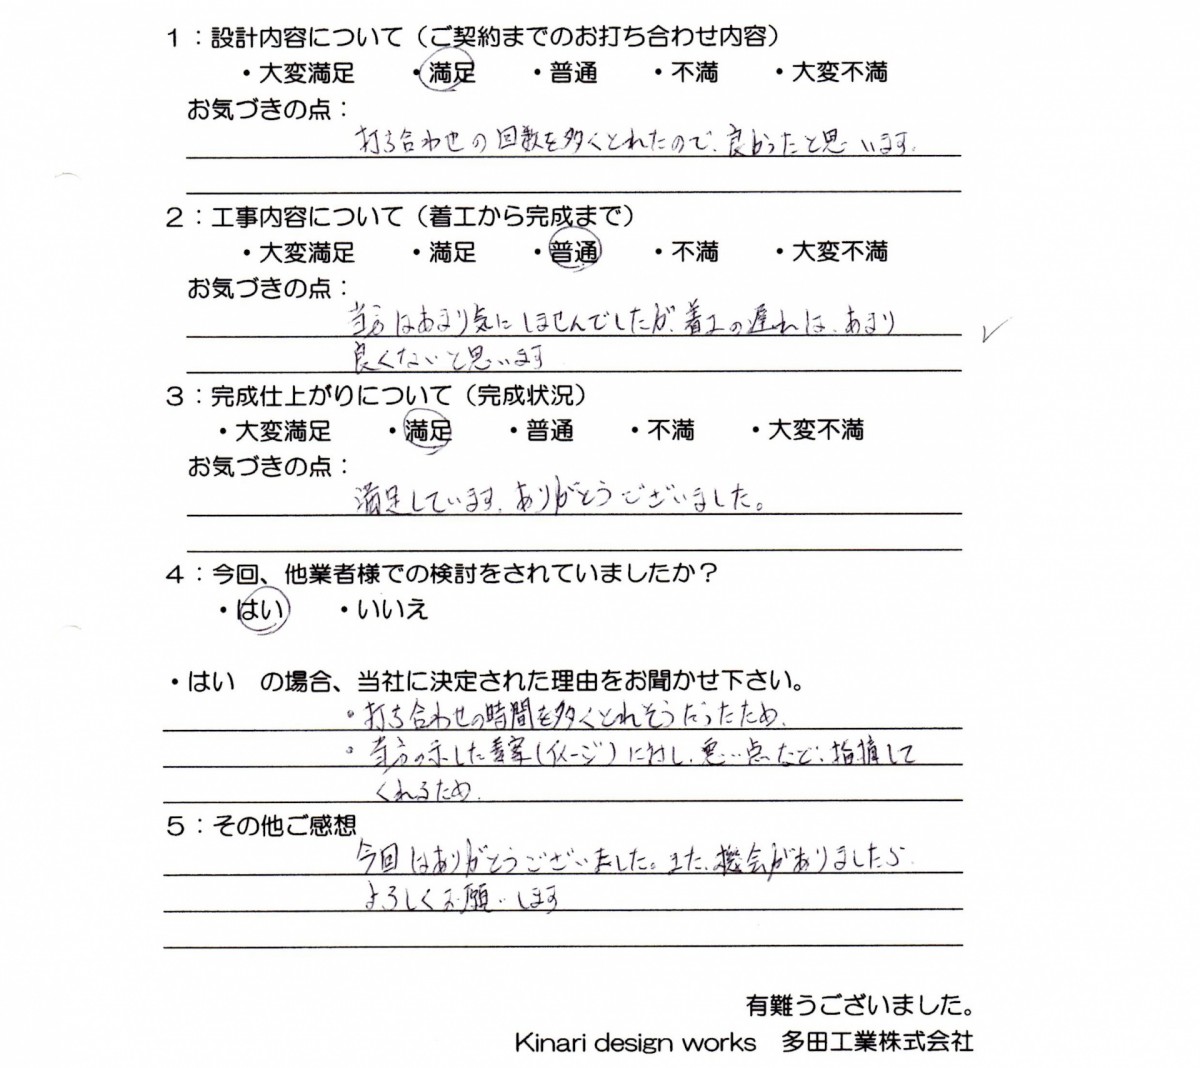 1：設計内容について（ご契約までのお打ち合わせ内容）
・大変満足　・満足　・普通　・不満　・大変不満
お気づきの点：
打ち合わせの回数を多くとれたので、良かったと思います。
2：工事内容について（着工から完成まで）
・大変満足　・満足　・普通　・不満　・大変不満
お気づきの点：
当方はあまり気にしませんでしたが、着工の遅れは、あまり
良くないと思います
3：完成仕上がりについて（完成状況）
・大変満足　・満足　・普通　・不満　・大変不満
お気づきの点：
満足しています。ありがとうございました。
4：今回、他業者様での検討をされていましたか？
・はい　・いいえ
・はい　の場合、当社に決定された理由をお聞かせ下さい。
・打ち合わせの時間を多くとれそうだったため。
・当方の示した案（イメージ）に対し、悪い点など、指摘して
くれるため。
5：その他ご感想
今回はありがとうございました。また、機会がありましたら
よろしくお願いします
有難うございました。
Kinari design works　多田工業株式会社